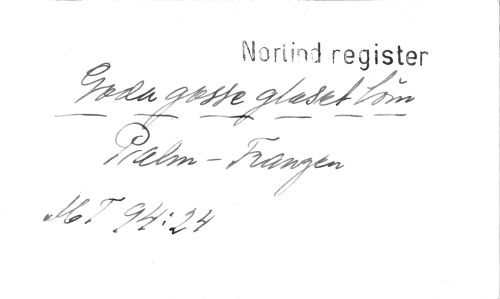 Norlind register
Goda gosse glaset töm
Psalm - Frangen
MT 94:24